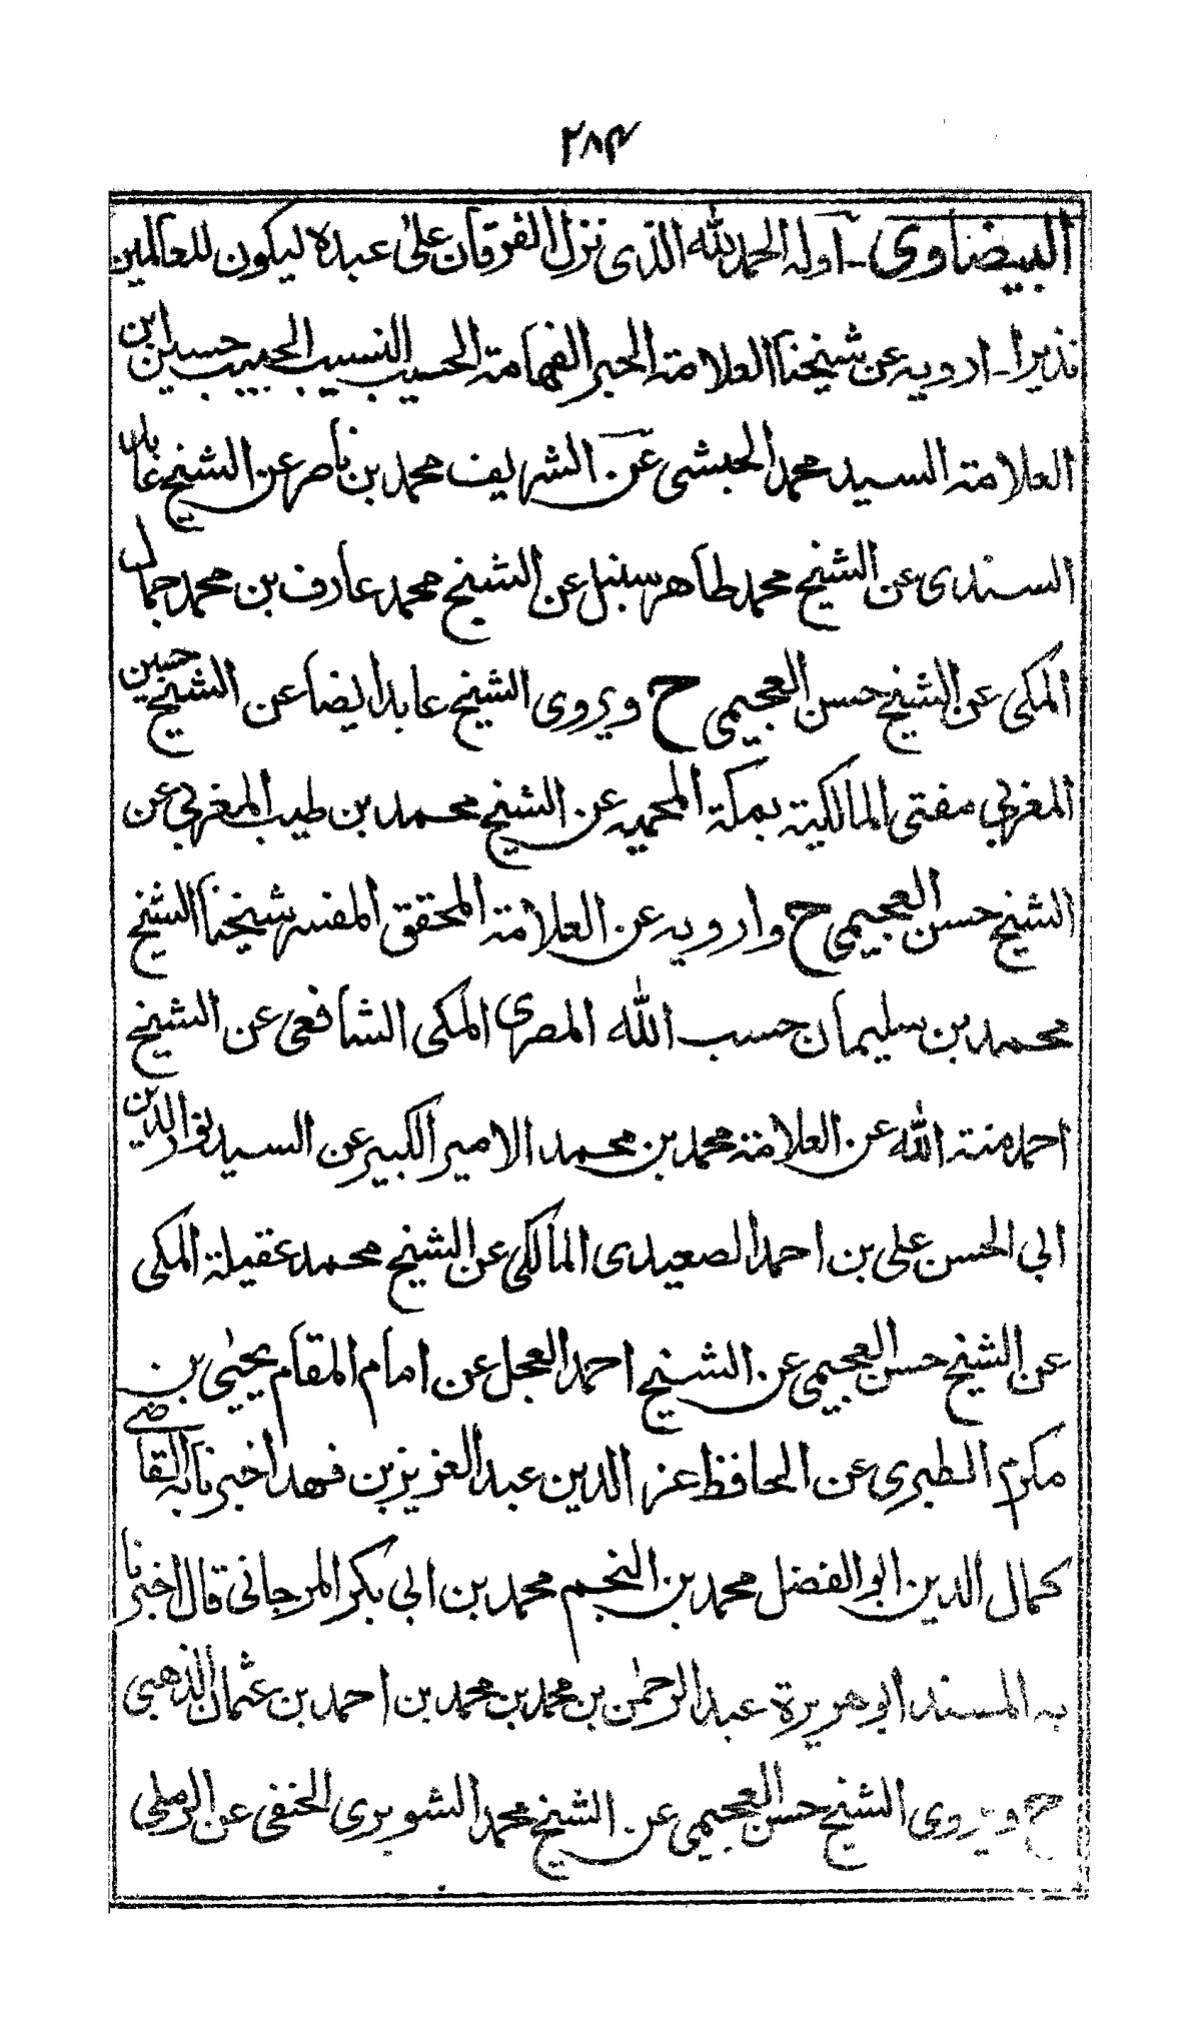 ۲۸۴
البيضاوي - اوله الحمد لله الذى نزل الفرقان على عبده ليكون للعالمين
نذيرا - ارويه عن شيخنا العلامة الحبر الفهامة الحسيب النسيب الحبيب حسين ابن
العلامة السيد محمد الحبشى عن الشريف محمد بن ناصر عن الشيخ عابد
السندى عن الشيخ محمد طاهر سنبل عن الشيخ محمد عارف بن محمد جمال
المكى عن الشيخ حسن العجيمى ح ويروى الشيخ عابد ايضا عن الشيخ حسين
المغربي مفتى المالكية بمكة المحميه عن الشيخ محمد بن طيب المغربي عن
الشيخ حسن العجيمى ح وارويه عن العلامة المحقق المفسر شيخنا الشيخ
محمد بن سليمان حسب الله المصرى المكى الشافعى عن الشيخ
احمد منة الله عن العلامة محمد بن محمد الامير الكبير عن السيد نور الدين
ابي الحسن على بن احمد الصعيدى المالكى عن الشيخ محمد عقيلة المكى
عن الشيخ حسن العجيمى عن الشيخ احمد العجل عن امام المقام يحيى بن
مكرم الطبرى عن الحافظ عز الدين عبد العزيز بن فهد اخبرنا به القاضى
كمال الدين ابو الفضل محمد بن النجم محمد بن ابي بكر المرجانى قال اخبرنا
به المسند ابو هريرة عبد الرحمن بن محمد بن محمد بن احمد بن عثمان الذهبى
ح ويروى الشيخ حسن العجيمى عن الشيخ محمد الشوبرى الحنفى عن الرملى